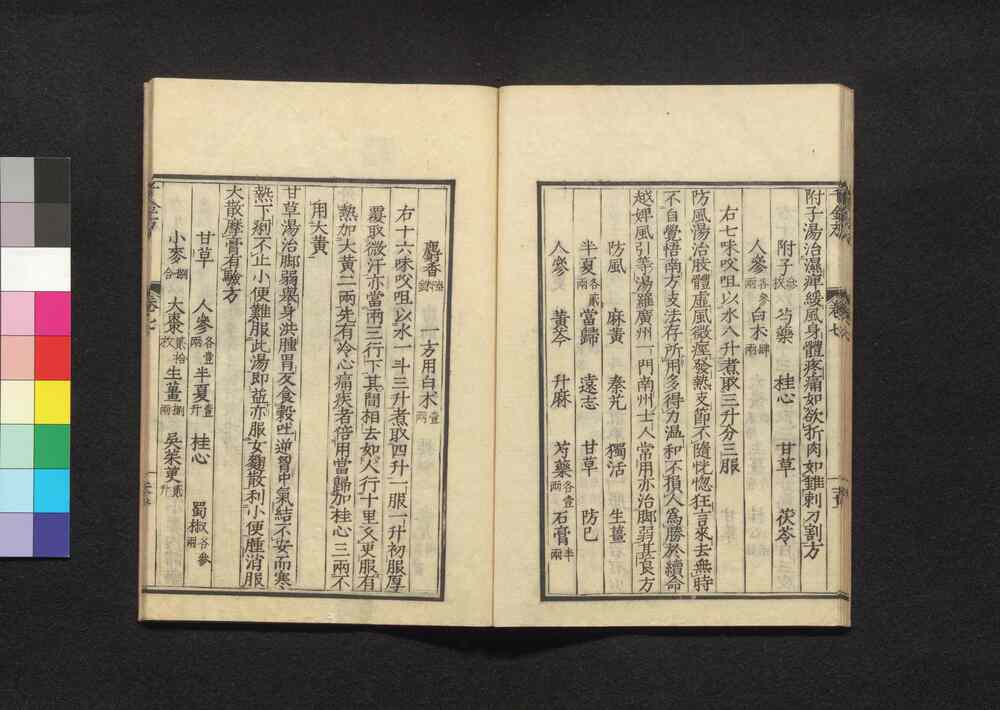 附子湯治濕痺緩風身體疼痛如欲折肉如錐刺刀割方
附子 芍藥 桂心 甘草 茯苓
人參各參兩 白朮肆兩
右七味㕮咀以水八升煮取三升分三服
防風湯治肢體虛風微痙發熱支節不隨恍惚狂言來去無時
不自覺悟南方支法存所用多得力溫和不損人爲勝於續命
越婢風引等湯羅廣州一門南州士人常用亦治脚弱甚良方
防風 麻黃 秦艽 獨活 生薑
半夏各貳兩 當歸 遠志 甘草 防已
人參 黃芩 升麻 芍藥各壹兩 石膏半兩
麝香 一方用白朮壹兩
右十六味㕮咀以水一斗三升煮取四升一服一升初服厚
覆取微汗亦當兩三行下其間相去如人行十里久更服有
熱加大黃二兩先有冷心痛疾者倍用當歸加桂心三兩不
用大黃
甘草湯治脚弱舉身洪腫胃反食穀吐逆胷中氣結不安而寒
熱下痢不止小便難服此湯即益亦服女麴散利小便腫消服
大散摩膏有驗方
甘草 人參各壹兩 半夏壹升 桂心 蜀椒各參兩
小麥捌合 大棗貳拾枚 生薑捌兩 吳茱萸貳升
卷七
卷七